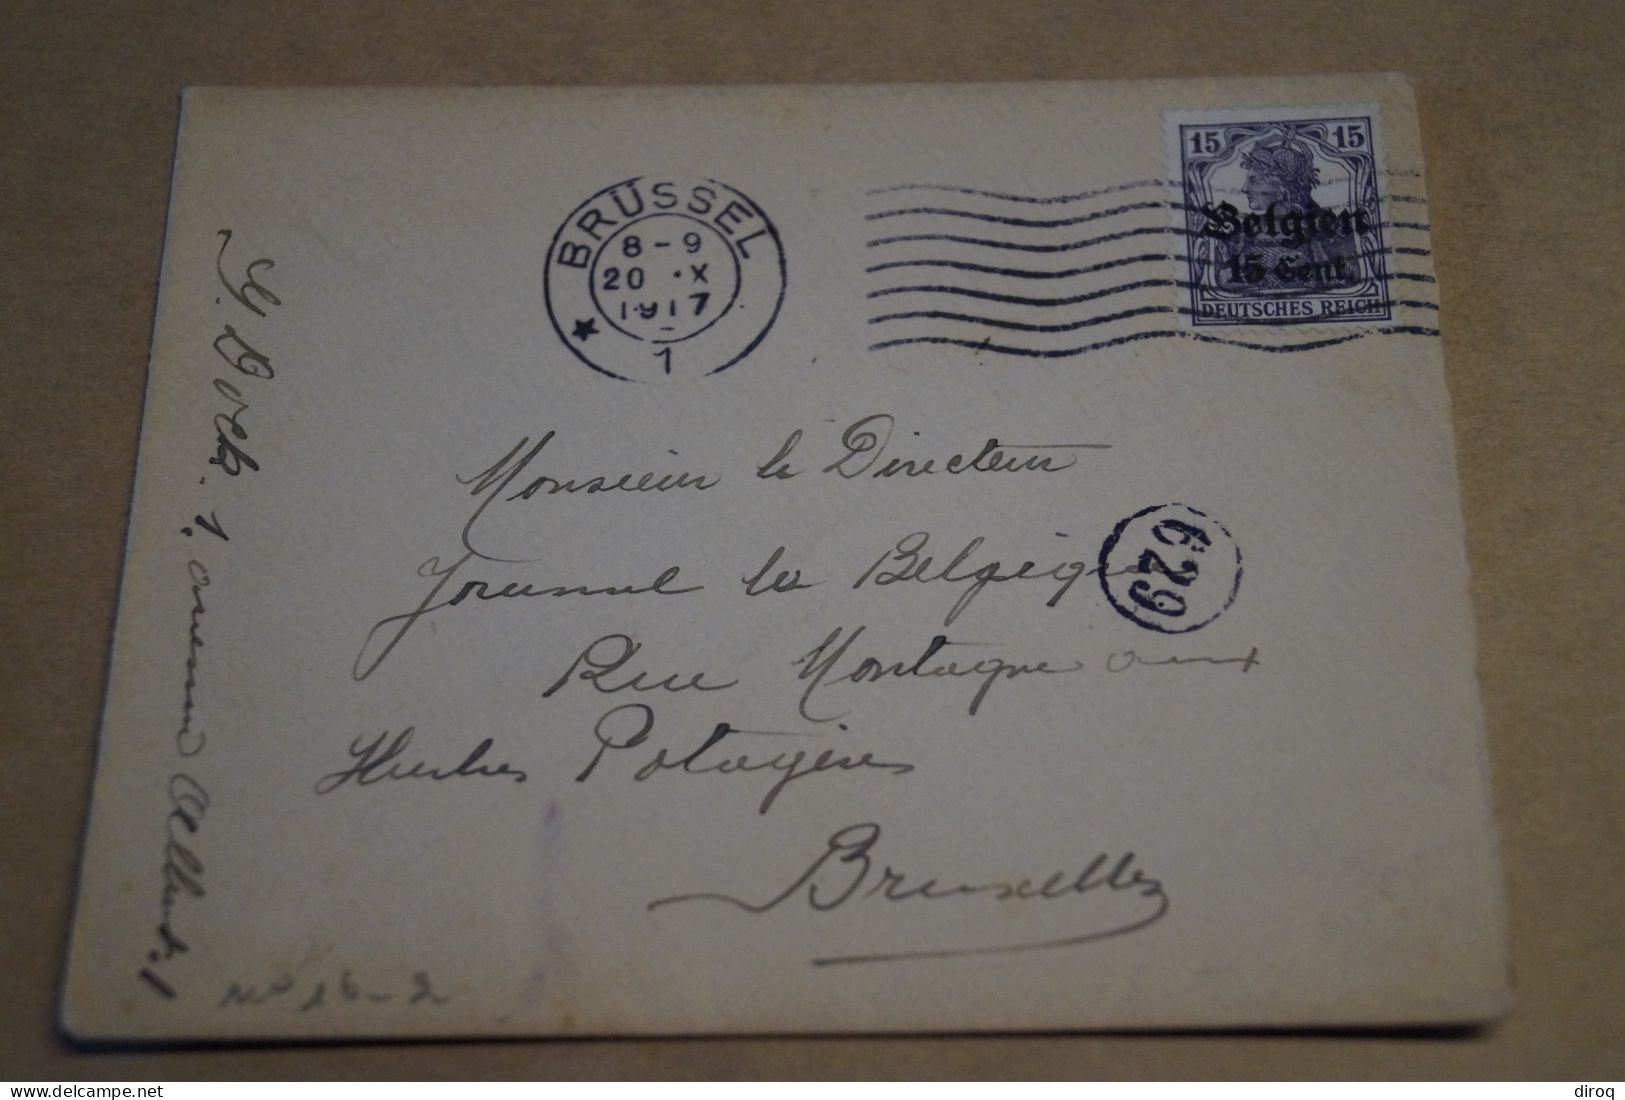 BRÜSSEL
8-9
20 .X
1917
1
15 15
Belgien
15 Cent
DEUTSCHES REICH
Monsieur le Directeur
Journal la Belgique
629
Rue Montagne aux
Herbes Potagères
Bruxelles
1, avenue
No 16-2
delcampe.net
diroq